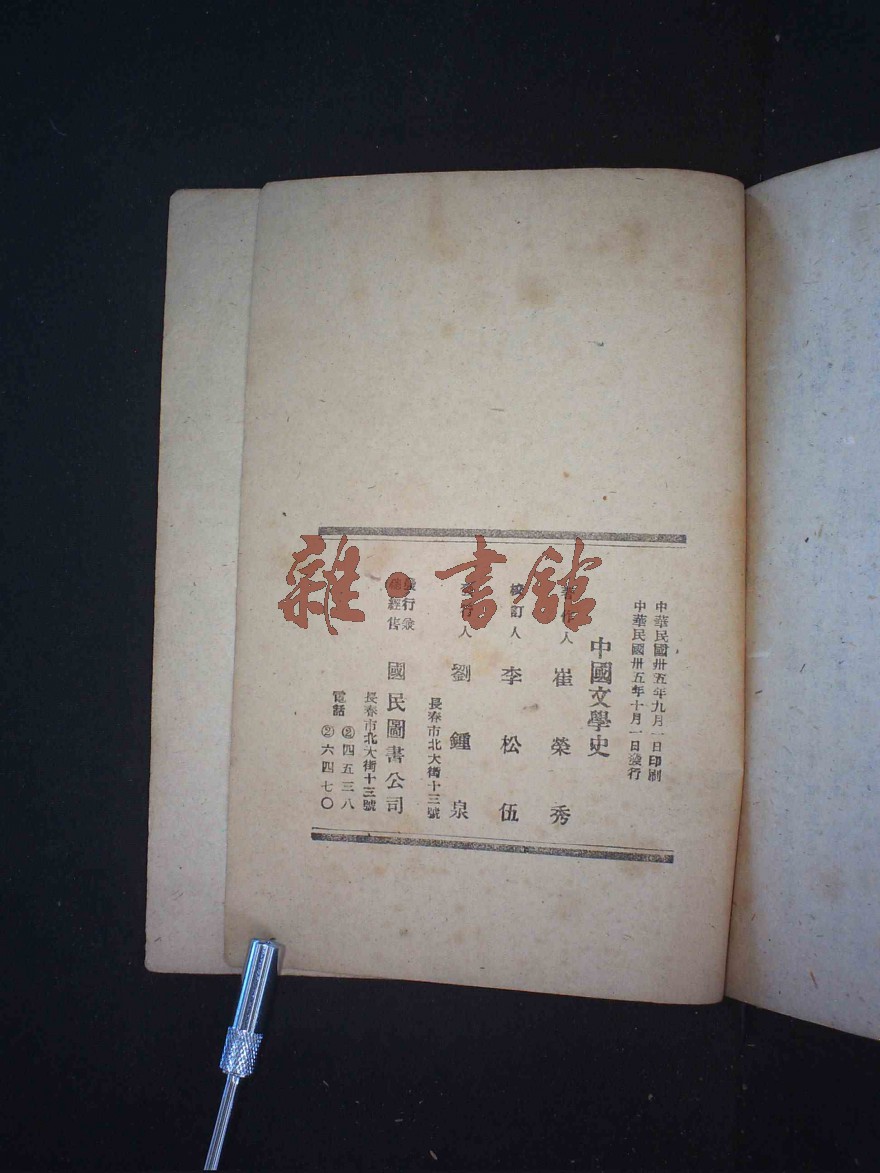 中華民國卅五年九月一日印刷
中華民國卅五年十月一日發行
中國文學史
著作人 崔榮秀
校訂人 李松伍
發行人 劉鍾泉
長春市北大街十三號
發行兼
總經售 國民圖書公司
長春市北大街十三號
電話 ②四五三八
②六四七〇
雜·書館